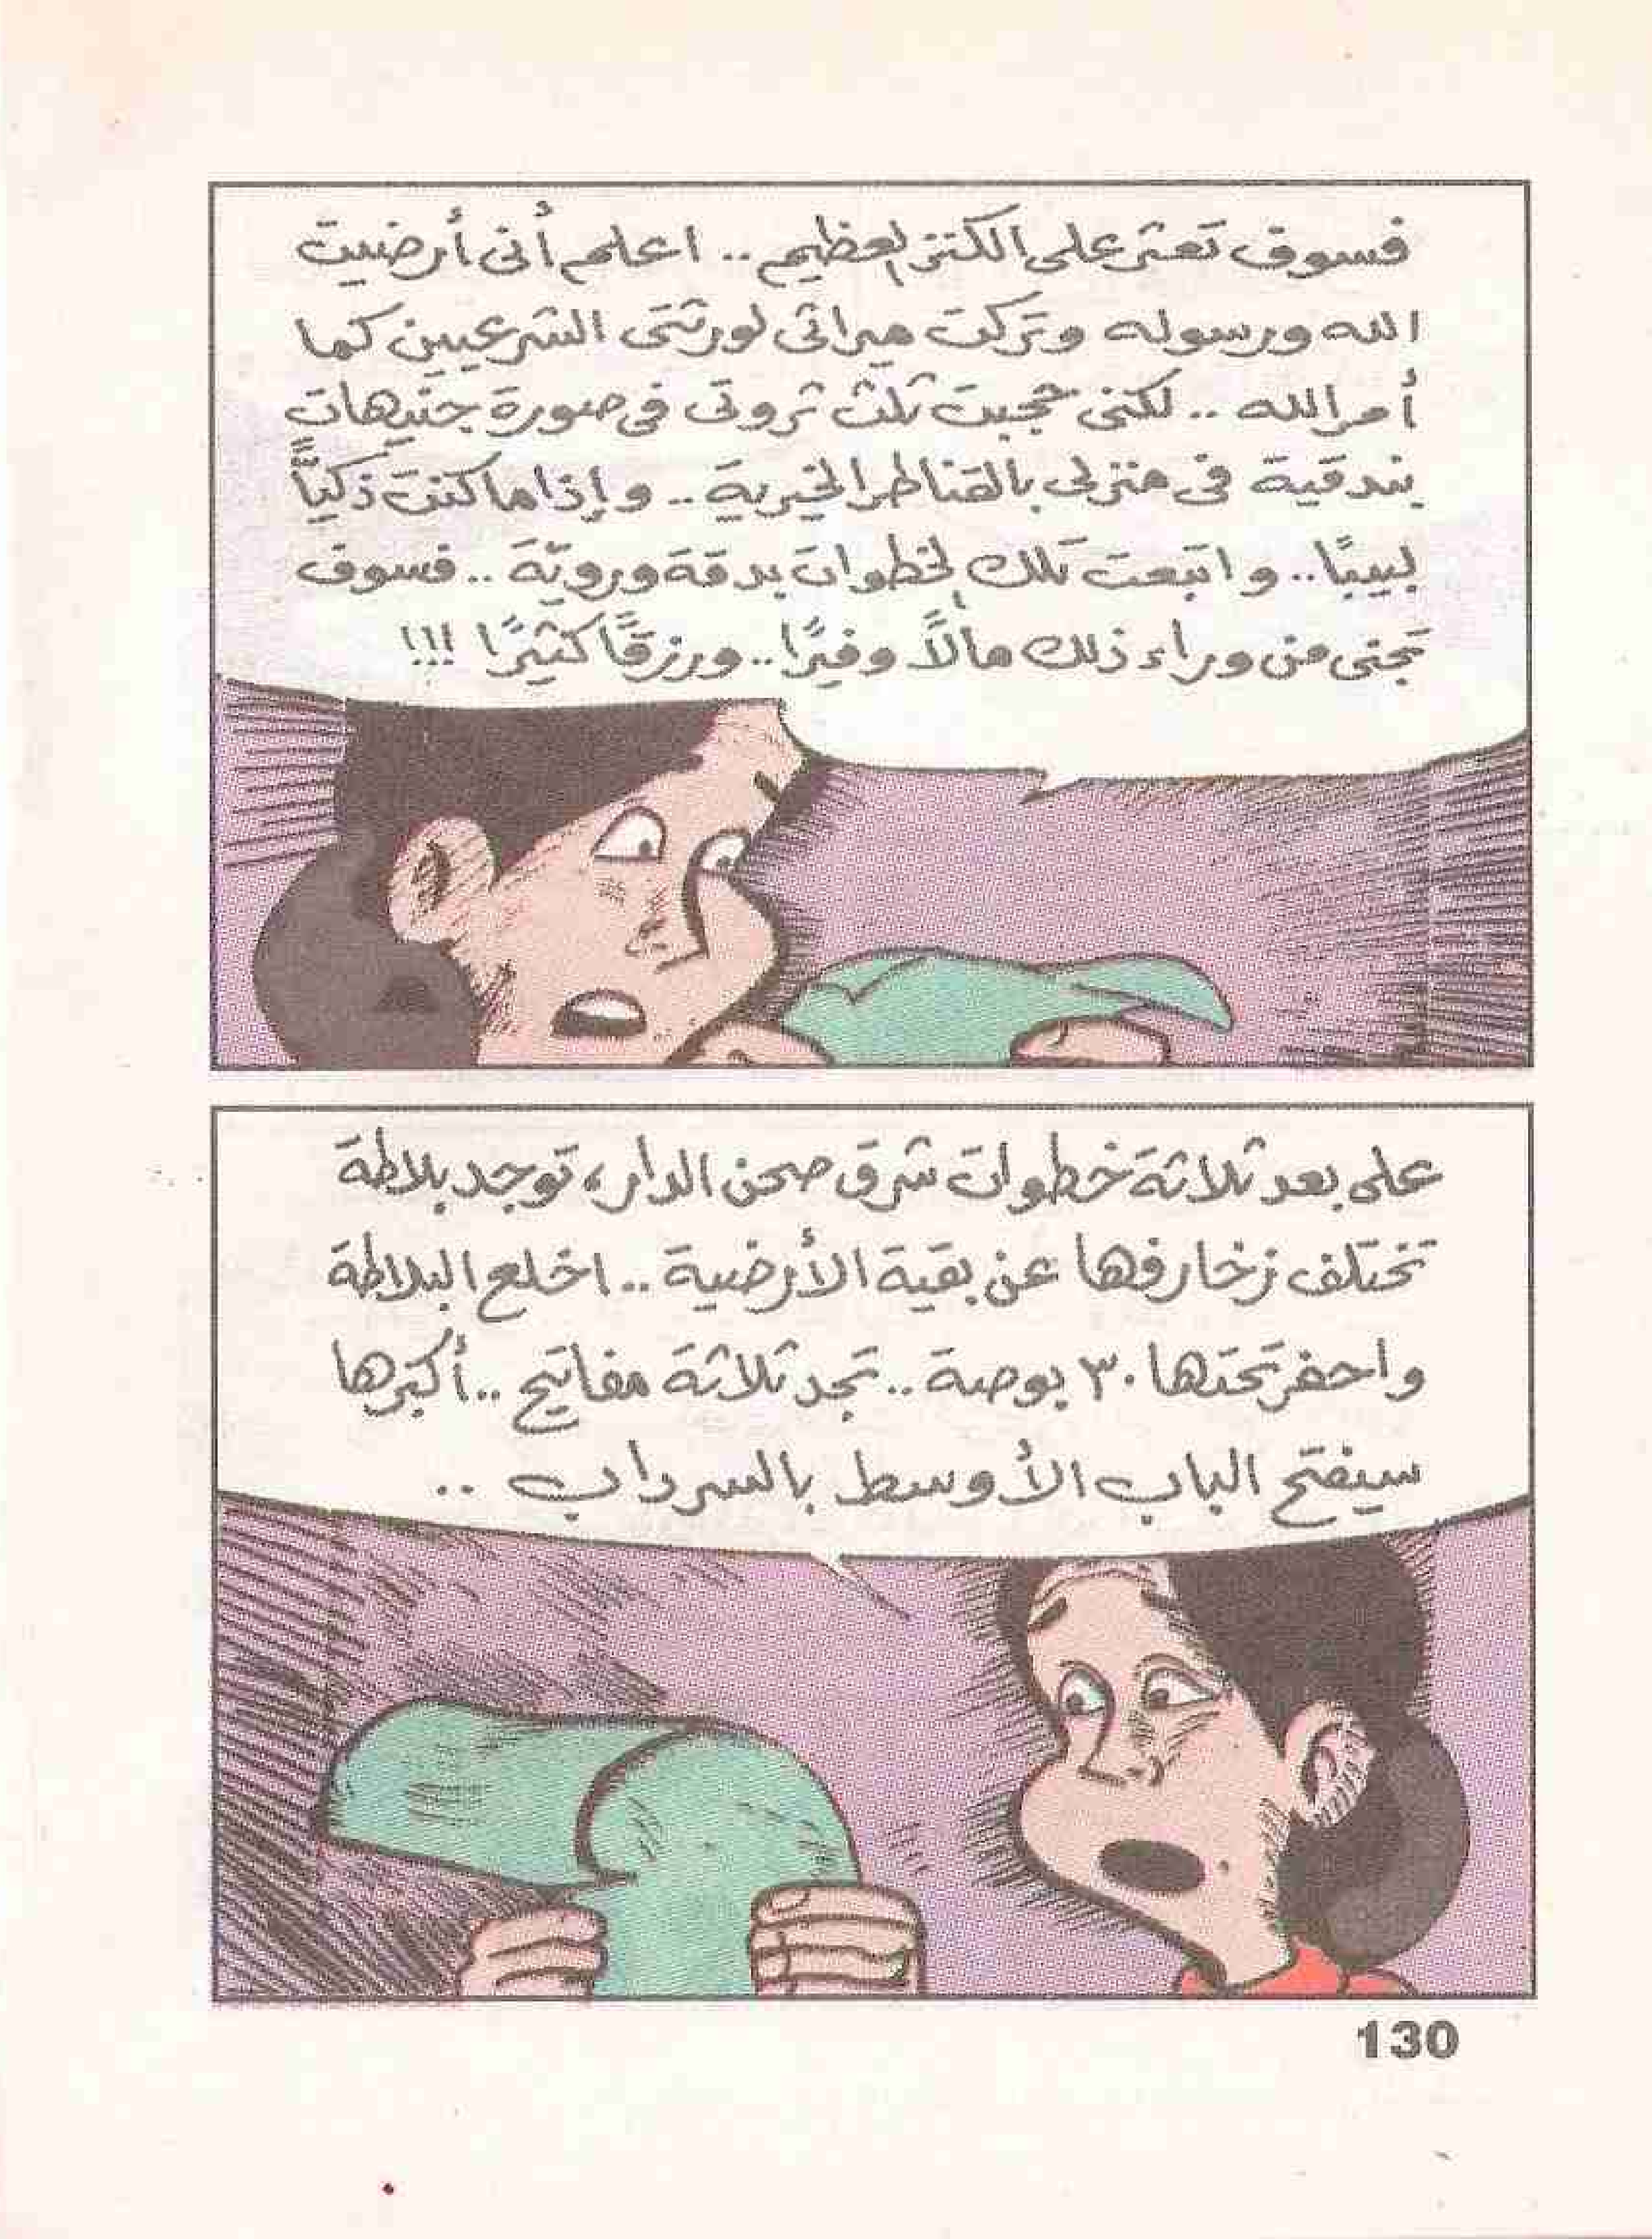 فسوف تعثر على الكنز العظيم .. اعلم أنى أرضيت
الله ورسوله وتركت ميراثى لورثتى الشرعيين كما
أمر الله .. لكنى حجبت ثلث ثروتى فى صورة جنيهات
بندقية فى منزلى بالقناطر الخيرية .. وإذا ما كنت ذكيًّا
لبيبًا .. واتبعت تلك الخطوات بدقة ورويّة .. فسوف
تجنى من وراء ذلك مالًا وفيرًا .. ورزقًا كثيرًا !!!
على بعد ثلاثة خطوات شرق صحن الدار، توجد بلاطة
تختلف زخارفها عن بقية الأرضية .. اخلع البلاطة
واحفر تحتها ٣٠ بوصة .. تجد ثلاثة مفاتيح .. أكبرها
سيفتح الباب الأوسط بالسرداب ..
130